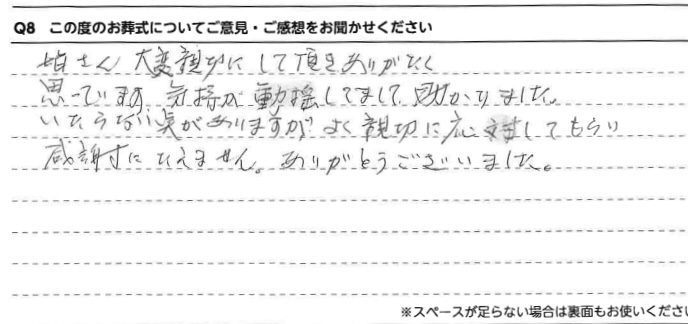 Q8 この度のお葬式についてご意見・ご感想をお聞かせください
皆さん 大変親切にして頂きありがたく
思っています。気持が動揺してまして、助かりました。
いたらない点がありますが、よく親切に応対してもらい
感謝にたえません。ありがとうございました。
※スペースが足らない場合は裏面もお使いくださ